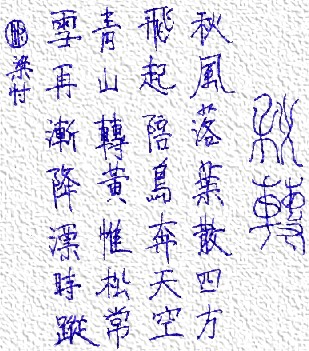 秋轉
秋風落葉散四方
飛起陪鳥奔天空
青山轉黃惟松常
雪再漸降漂時蹤